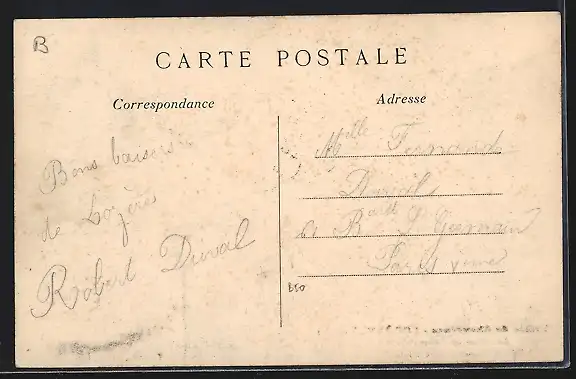 B
CARTE POSTALE
Correspondance
Adresse
Bons baisers
de Lozères
Robert Duval
Mlle Fernande
Duval
B S Germain
Paris
B50